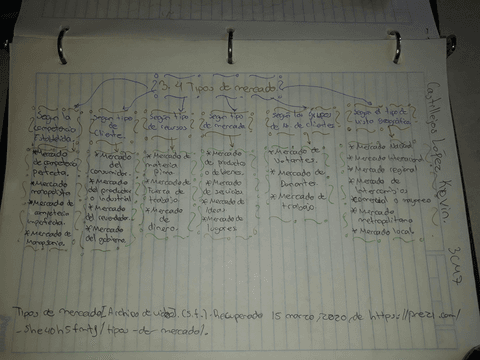 3.4 Tipos de mercado
Según la
competencia
Establecida.
* Mercado
de competencia
perfecta.
* Mercado
monopolista
* Mercado de
competencia
imperfecta.
* Mercado de
Monopsonio.
Según tipo
de
Cliente.
* Mercado
del
consumidor.
* Mercado
del productor
o industrial
* Mercado
del revendedor
* Mercado
del gobierno.
Según tipo
de recursos
* Mercado de
materia
prima
* Mercado de
fuerza de
trabajo.
* Mercado
de
dinero.
Según tipo
de mercado
* Mercado
de producto
o bienes.
* Mercado
de servicios
* Mercado de
ideas
* Mercado de
lugares
Según los grupos
de no clientes.
* Mercado de
votantes.
* Mercado de
Donantes.
* Mercado de
trabajo
Según el tipo de
* Mercado
* Mercado internacional
* Mercado regional
* Mercado de
intercambio
comercial o mayoreo
* Mercado
metropolitano
* Mercado local.
Castillejos López Kevin.
3CM7
Tipos de mercado [Archivo de video]. (S.f.). Recuperado 15 marzo, 2020, de https://prezi.com/
/tipos-der mercado/.